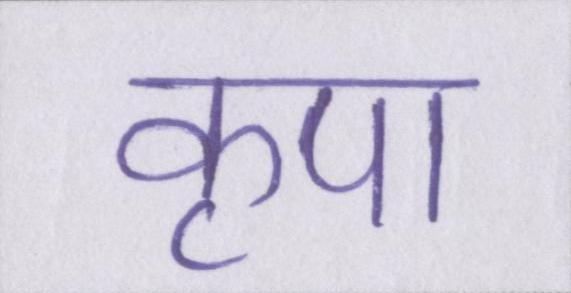 कृपा